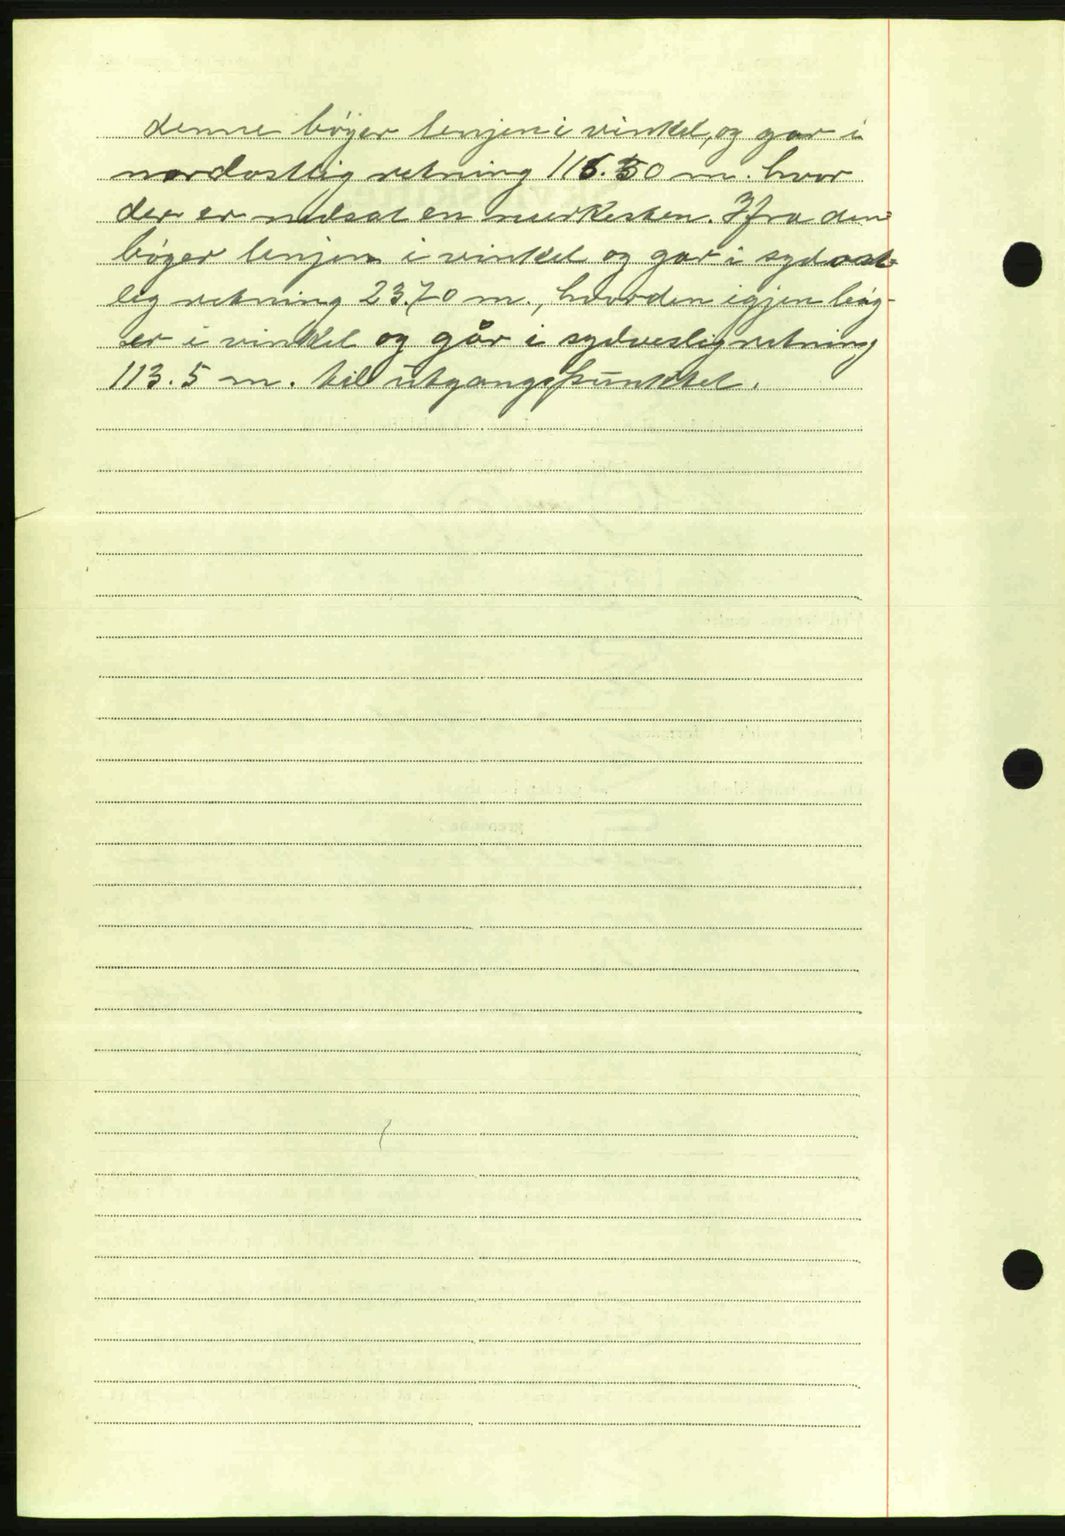 denne bøyer lenjen i vinkel, og gar i
nordostlig retning 116.50 m. hvor
der er nedsat en merkesten. Ifra den
bøyer lenjen i vinkel og gar i sydost-
lig retning 23.70 m., hvor den igjen bøy-
er i vinkel og går i sydveslig retning
113.5 m. til utgangspunktet.